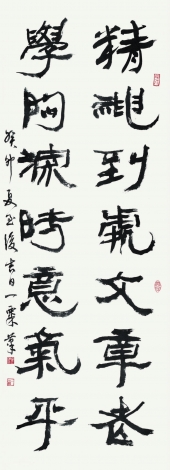 精神到處文章老
學問深時意氣平
癸卯夏至後吉日一粟